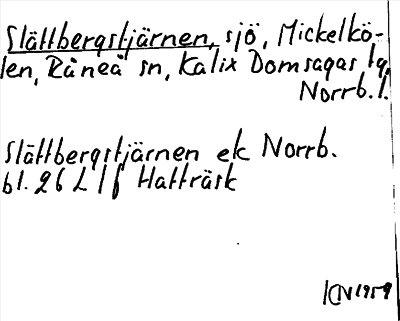 Slättbergstjärnen, sjö, Mickelkö-
len, Råneå sn, Kalix Domsagas tg,
Norrb. l.
Slättbergstjärnen ek Norrb.
bl. 26 L 1 f Hatträsk
KN 1959